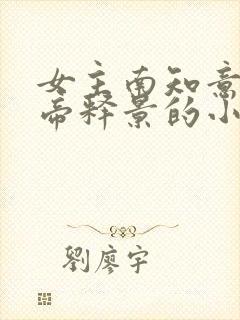 女主南知意
帝释景的小
劉廖宇